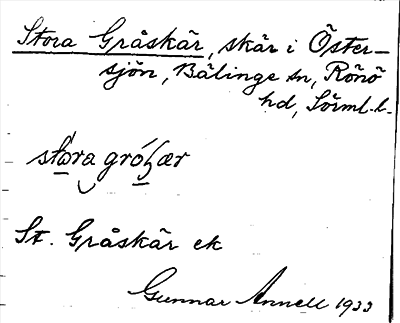 Stora Gråskär, skär i Öster-
sjön, Bälinge sn, Rönö
hd, Sörml. l.
stora gróʃ̲ær
St. Gråskär ek
Gunnar Annell 1933